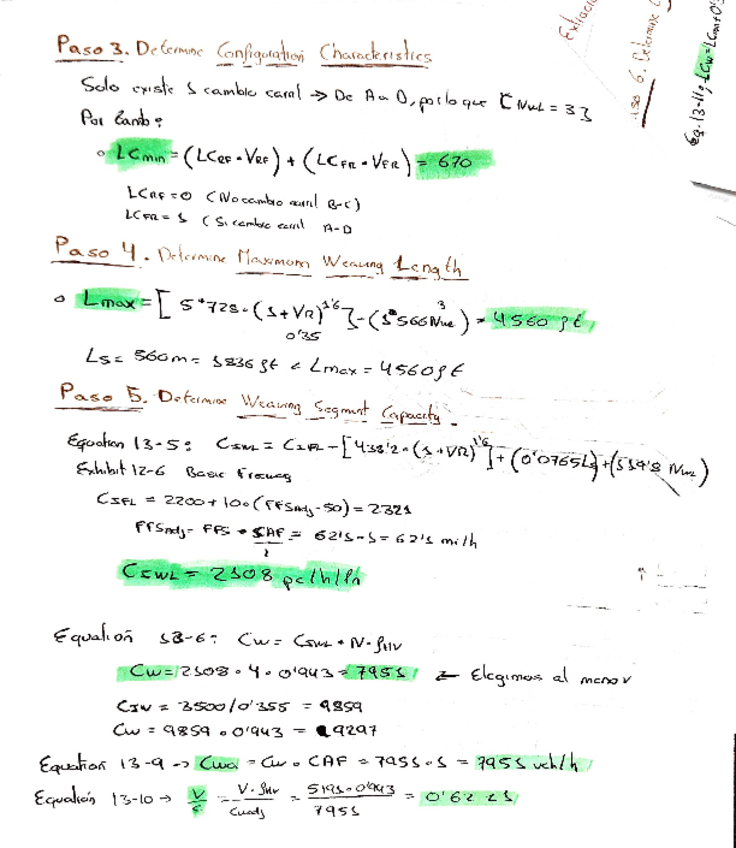 Paso 3. Determine Configuration Characteristics
Solo existe 1 cambio carril → De A a D, por lo que [NWL = 3]
Por tanto:
◦ LCmin = (LCRF · VRF) + (LCFR · VFR) = 670
LCRF = 0 (No cambio carril B-C)
LCFR = 1 (Si cambio carril A-D
Paso 4. Determine Maximum Weaving Length
◦ Lmax = [5'728 · (1+VR)^1'6] - (1'566 NWL) = 4560 ft
3
0'35
LS = 560m = 1836 ft < Lmax = 4560 ft
Paso 5. Determine Weaving Segment Capacity.
Equation 13-5: CIWL = CIFL - [438'2 · (1+VR)^1'6] + (0'0765 LS) + (119'8 NWL)
Exhibit 12-6 Basic Freeway
CIFL = 2200 + 10 · (FFSadj - 50) = 2321
FFSadj = FFS · SAF = 62'1 · 1 = 62'1 mi/h
1
CIWL = 2108 pc/h/ln
Equation 13-6: CW = CIWL · N · fHV
CW = 2108 · 4 · 0'943 = 7951 ← Elegimos al menor
CIW = 3500/0'355 = 9859
CW = 9859 · 0'943 = 9297
Equation 13-9 → Cwa = Cw · CAF = 7951 · 1 = 7951 veh/h
Equation 13-10 → V/c = V · fHV / Cwadj = 5191 · 0'943 / 7951 = 0'6221
Eq. 13-11, LCW = LCmin + 0'
6. Determine